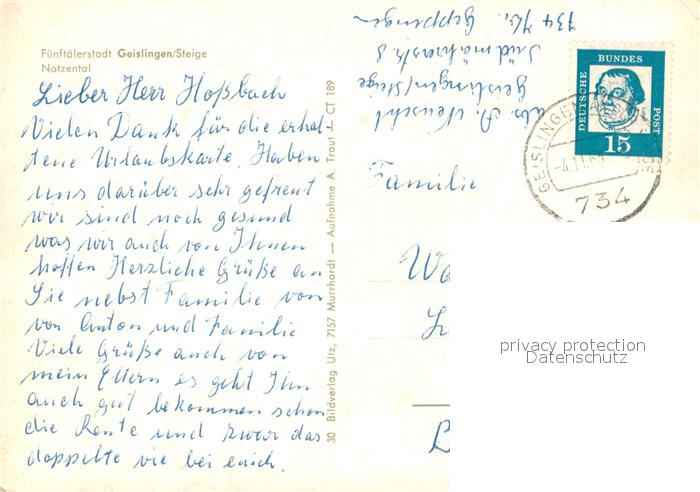 Fünftälerstadt Geislingen/Steige
Notzental
Lieber Herr Hoßbach
Vielen Dank für die erhal
tene Urlaubskarte. Haben
uns darüber sehr gefreut
wir sind noch gesund
was wir auch von Ihnen
hoffen Herzliche Grüße an
Sie nebst Familie von
von Anton und Familie
Viele Grüße auch von
mein Eltern es geht Ihn
auch gut bekommen schon
die Rente und zwar das
doppelte wie bei euich.
30 Bildverlag Utz, 7157 Murrhardt — Aufnahme A. Traut ⊥ CT 189
Abs. A.
Geislingen/Steige
Südmährerstr. 8
734
DEUTSCHE BUNDES POST
15
GEISLINGEN
734
Familie
privacy protection
Datenschutz